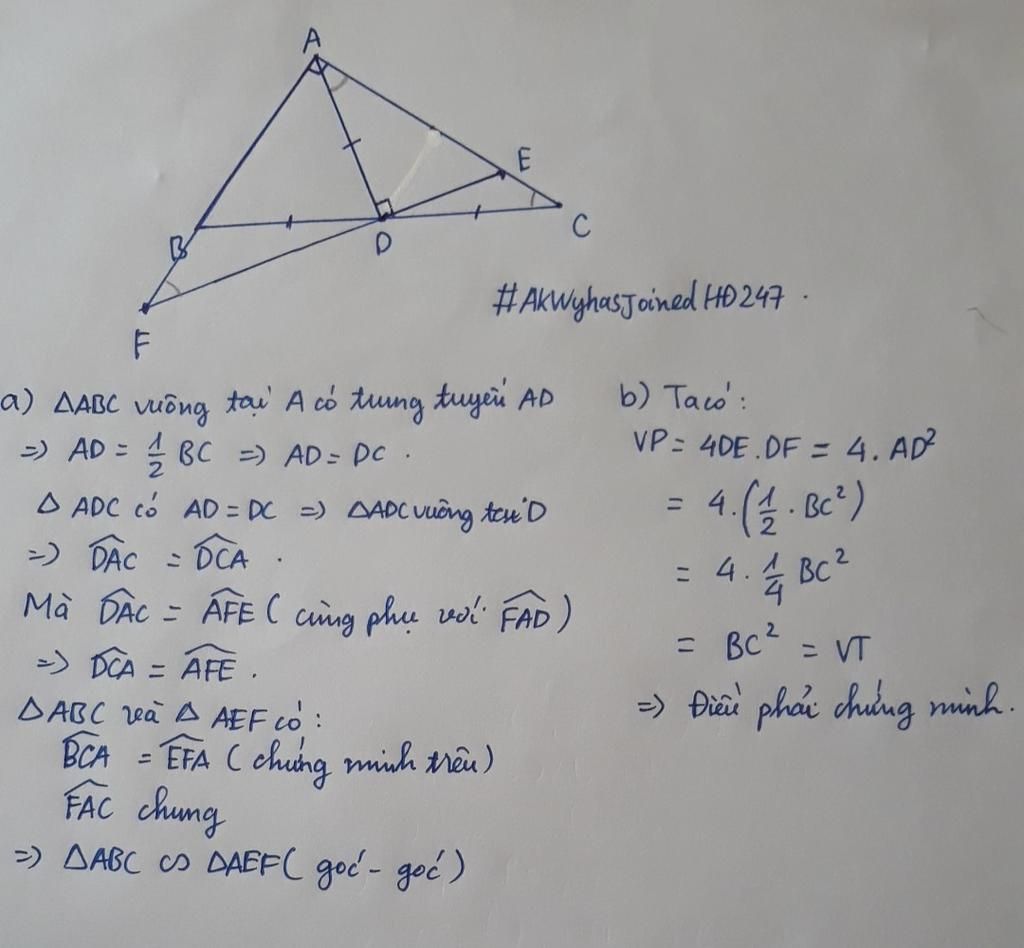 A
E
B
D
C
F
#AkWyhasJoinedHĐ247.
a) ΔABC vuông tại A có trung tuyến AD
=> AD = 1/2 BC => AD = DC.
Δ ADC có AD = DC => ΔADC vuông tại D
=> \widehat{DAC} = \widehat{DCA}.
Mà \widehat{DAC} = \widehat{AFE} ( cùng phụ với \widehat{FAD} )
=> \widehat{DCA} = \widehat{AFE}.
ΔABC và Δ AEF có:
\widehat{BCA} = \widehat{EFA} ( chứng minh trên)
\widehat{FAC} chung
=> ΔABC ∽ ΔAEF ( góc - góc )
b) Ta có:
VP = 4DE.DF = 4.AD²
= 4.(1/2 . BC²)
= 4. 1/4 BC²
= BC² = VT
=> Điều phải chứng minh.